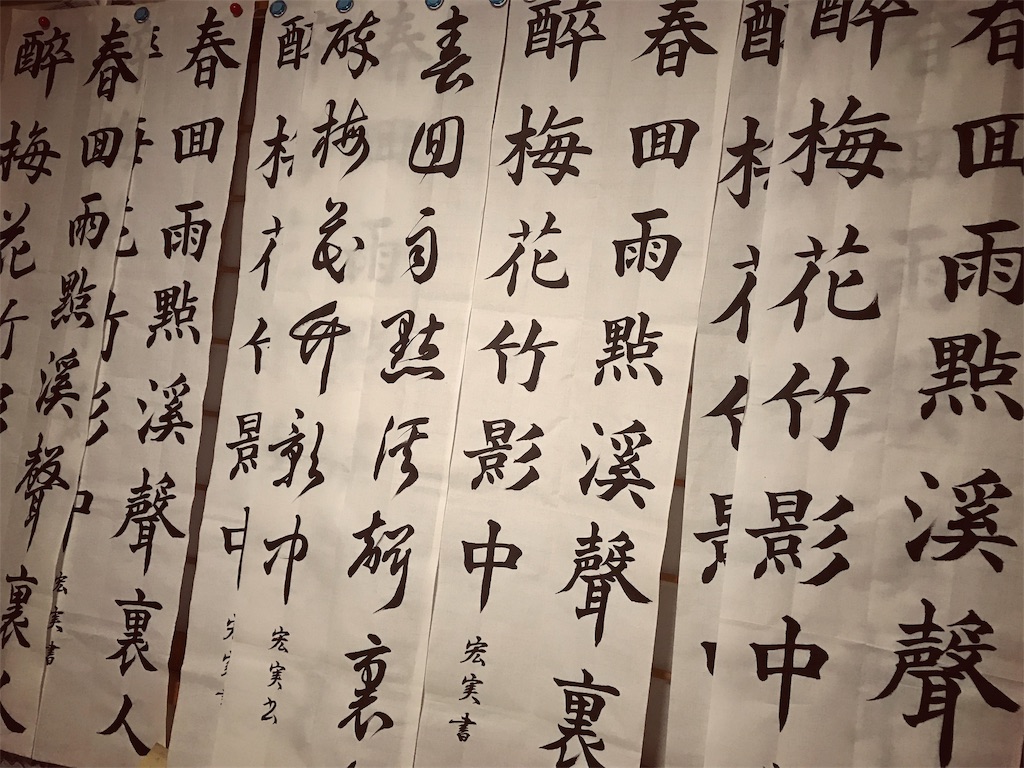 春囬雨點溪聲
醉梅花竹影中
春囬雨點溪聲裏
醉梅花竹影中
宏実書
春囬雨點溪聲裏
醉梅花竹影中
宏実书
影
春囬雨點溪聲裏人
宏実書
春囬雨點溪聲裏人
醉梅花竹